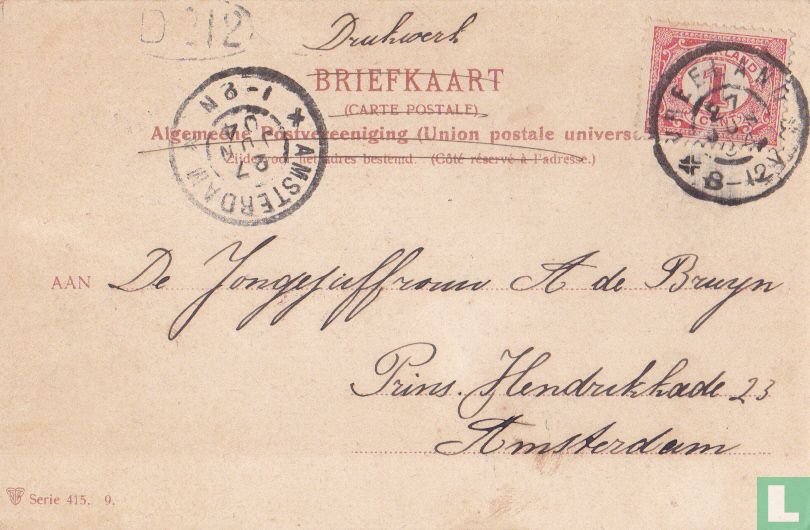 D 12
Drukwerk
BRIEFKAART
(CARTE POSTALE)
Algemeene Postvereeniging (Union postale univers
Zijde voor het adres bestemd. (Côté réservé à l'adresse.)
AMSTERDAM
27
JUN
04
1-2N
VREELAND
27
JUN
8-12V
1
AAN De Jongejuffrouw A de Bruyn
Prins. Hendrikkade 23
Amsterdam
Serie 415. 9.
L